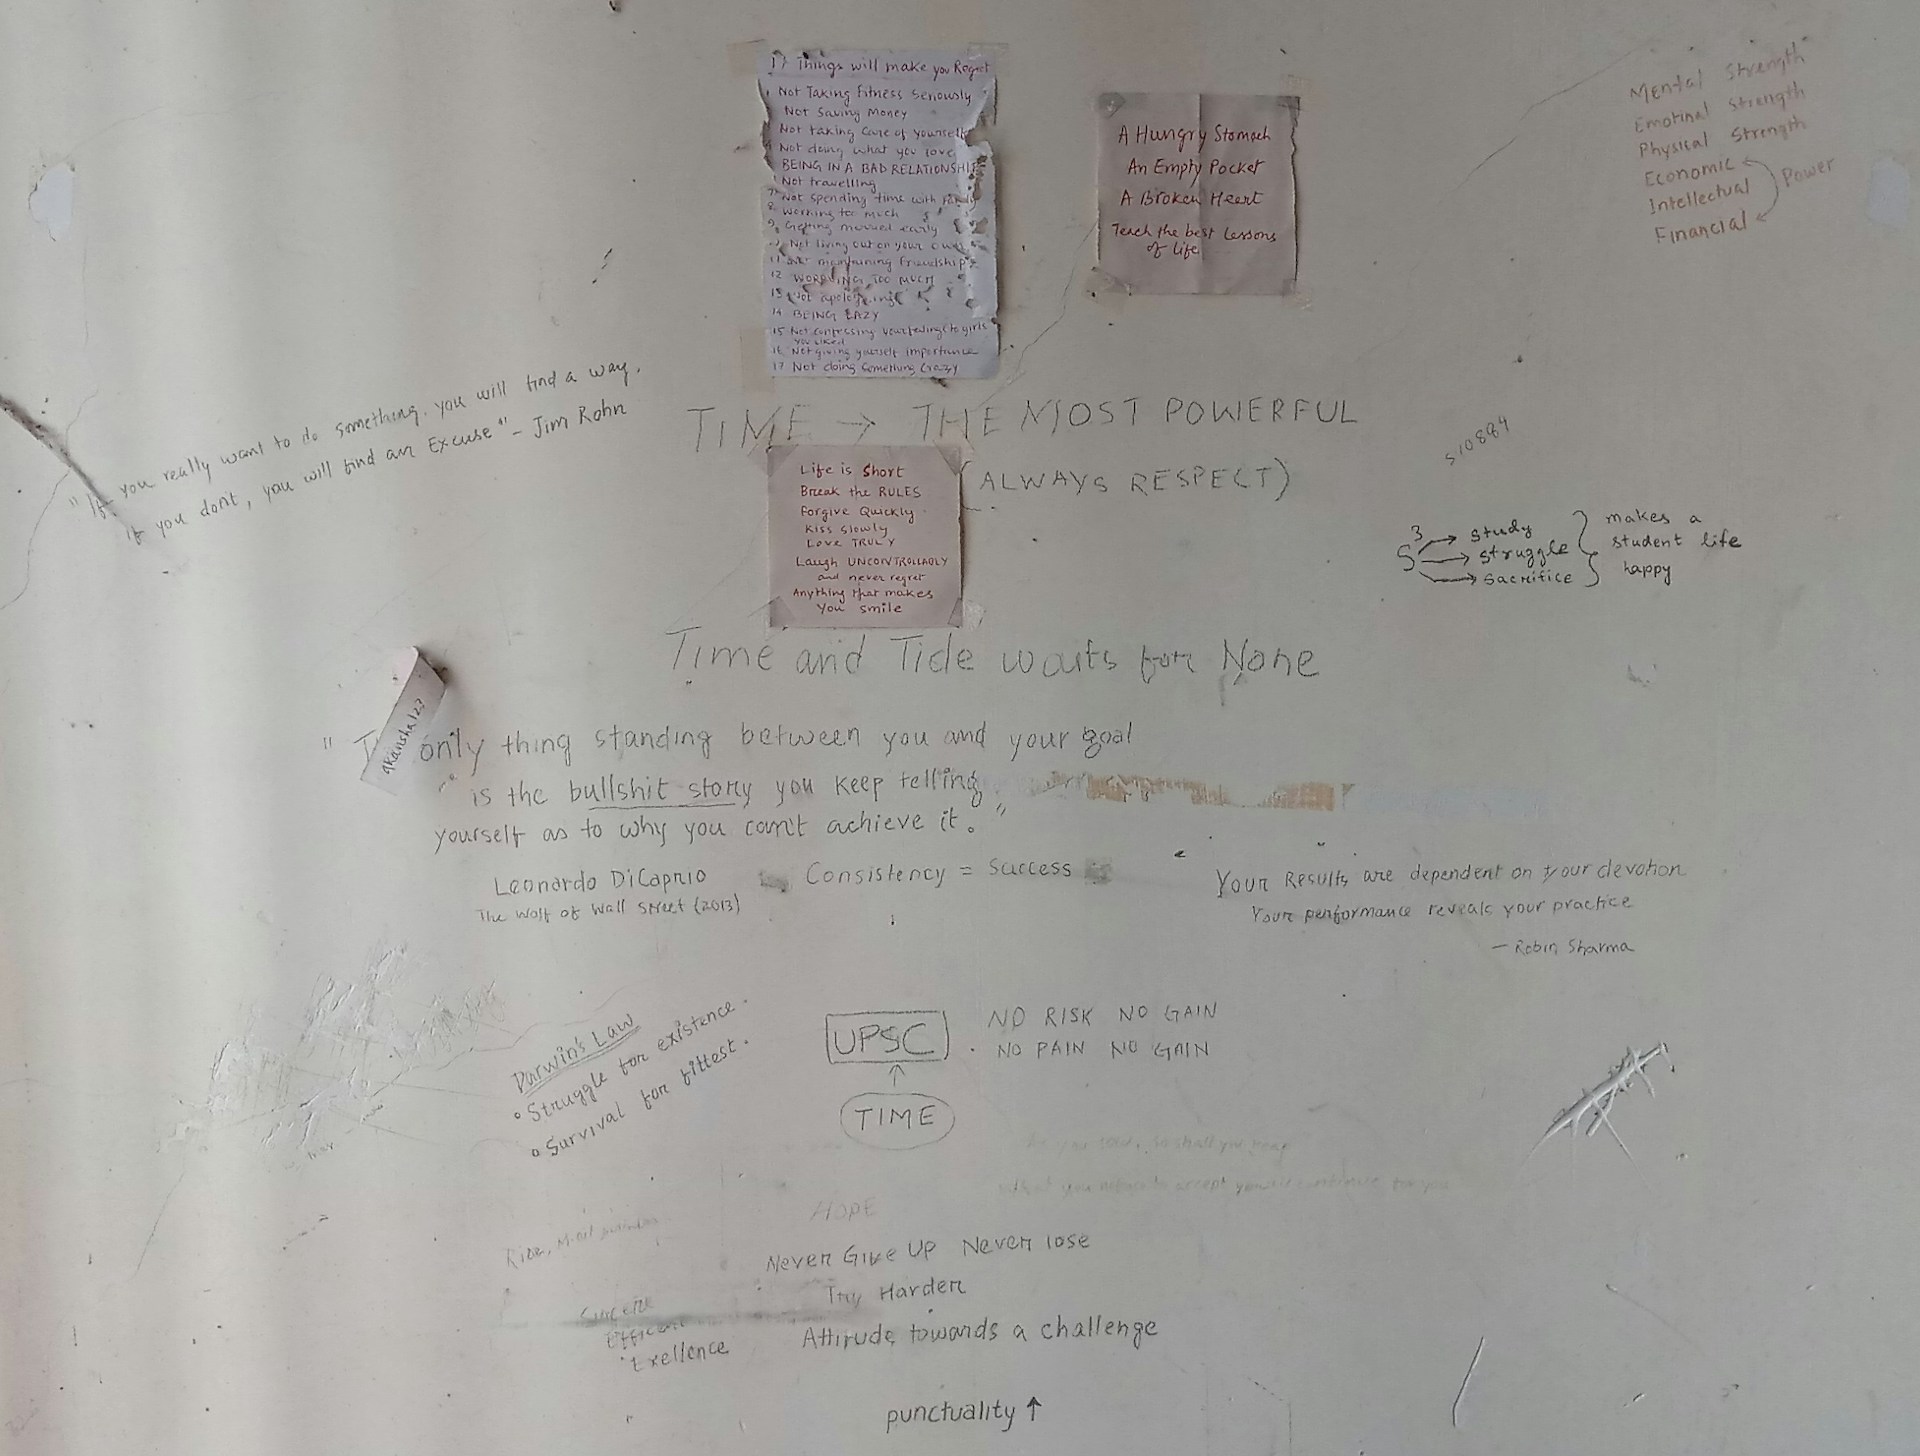 17 Things will make you Regret
1 Not Taking Fitness Seriously
Not Saving Money
Not taking care of yourself
4 Not doing what you love
BEING IN A BAD RELATIONSHIP
Not travelling
7 Not spending time with family
8 Working too much
9 Getting married early
Not living out on your own
11 maintaining Friendship
12 WORRYING TOO MUCH
13 Not apologizing
14 BEING LAZY
15 Not confessing your feelings to girls
you liked
16 Not giving yourself importance
17 Not doing Something Crazy
A Hungry Stomach
An Empty Pocket
A Broken Heart
Teach the best Lessons
of Life
Mental Strength
Emotinal Strength
Physical Strength
Economic
Intellectual
Financial
Power
"If you really want to do something. you will find a way.
if you don't, you will find an Excuse" - Jim Rohn
TIME → THE MOST POWERFUL
(ALWAYS RESPECT)
Life is Short
Break the RULES
Forgive Quickly
Kiss Slowly
Love TRULY
Laugh UNCONTROLLABLY
and never regret
Anything that makes
You smile
510884
S3 → study
→ struggle
→ sacrifice
makes a
student life
happy
Time and Tide waits for None
akansha123
" only thing standing between you and your goal
is the bullshit story you keep telling
yourself as to why you can't achieve it."
Leonardo DiCaprio
The Wolf of Wall Street (2013)
Consistency = Success
Your Results are dependent on your devotion
Your performance reveals your practice
- Robin Sharma
Darwin's Law
• Struggle for existence.
• Survival for fittest.
UPSC
↑
TIME
NO RISK NO GAIN
• NO PAIN NO GAIN
As you sow, so shall you reap
HOPE
Never Give Up Never lose
Try Harder
Attitude towards a challenge
Efficient
Exellence
punctuality ↑